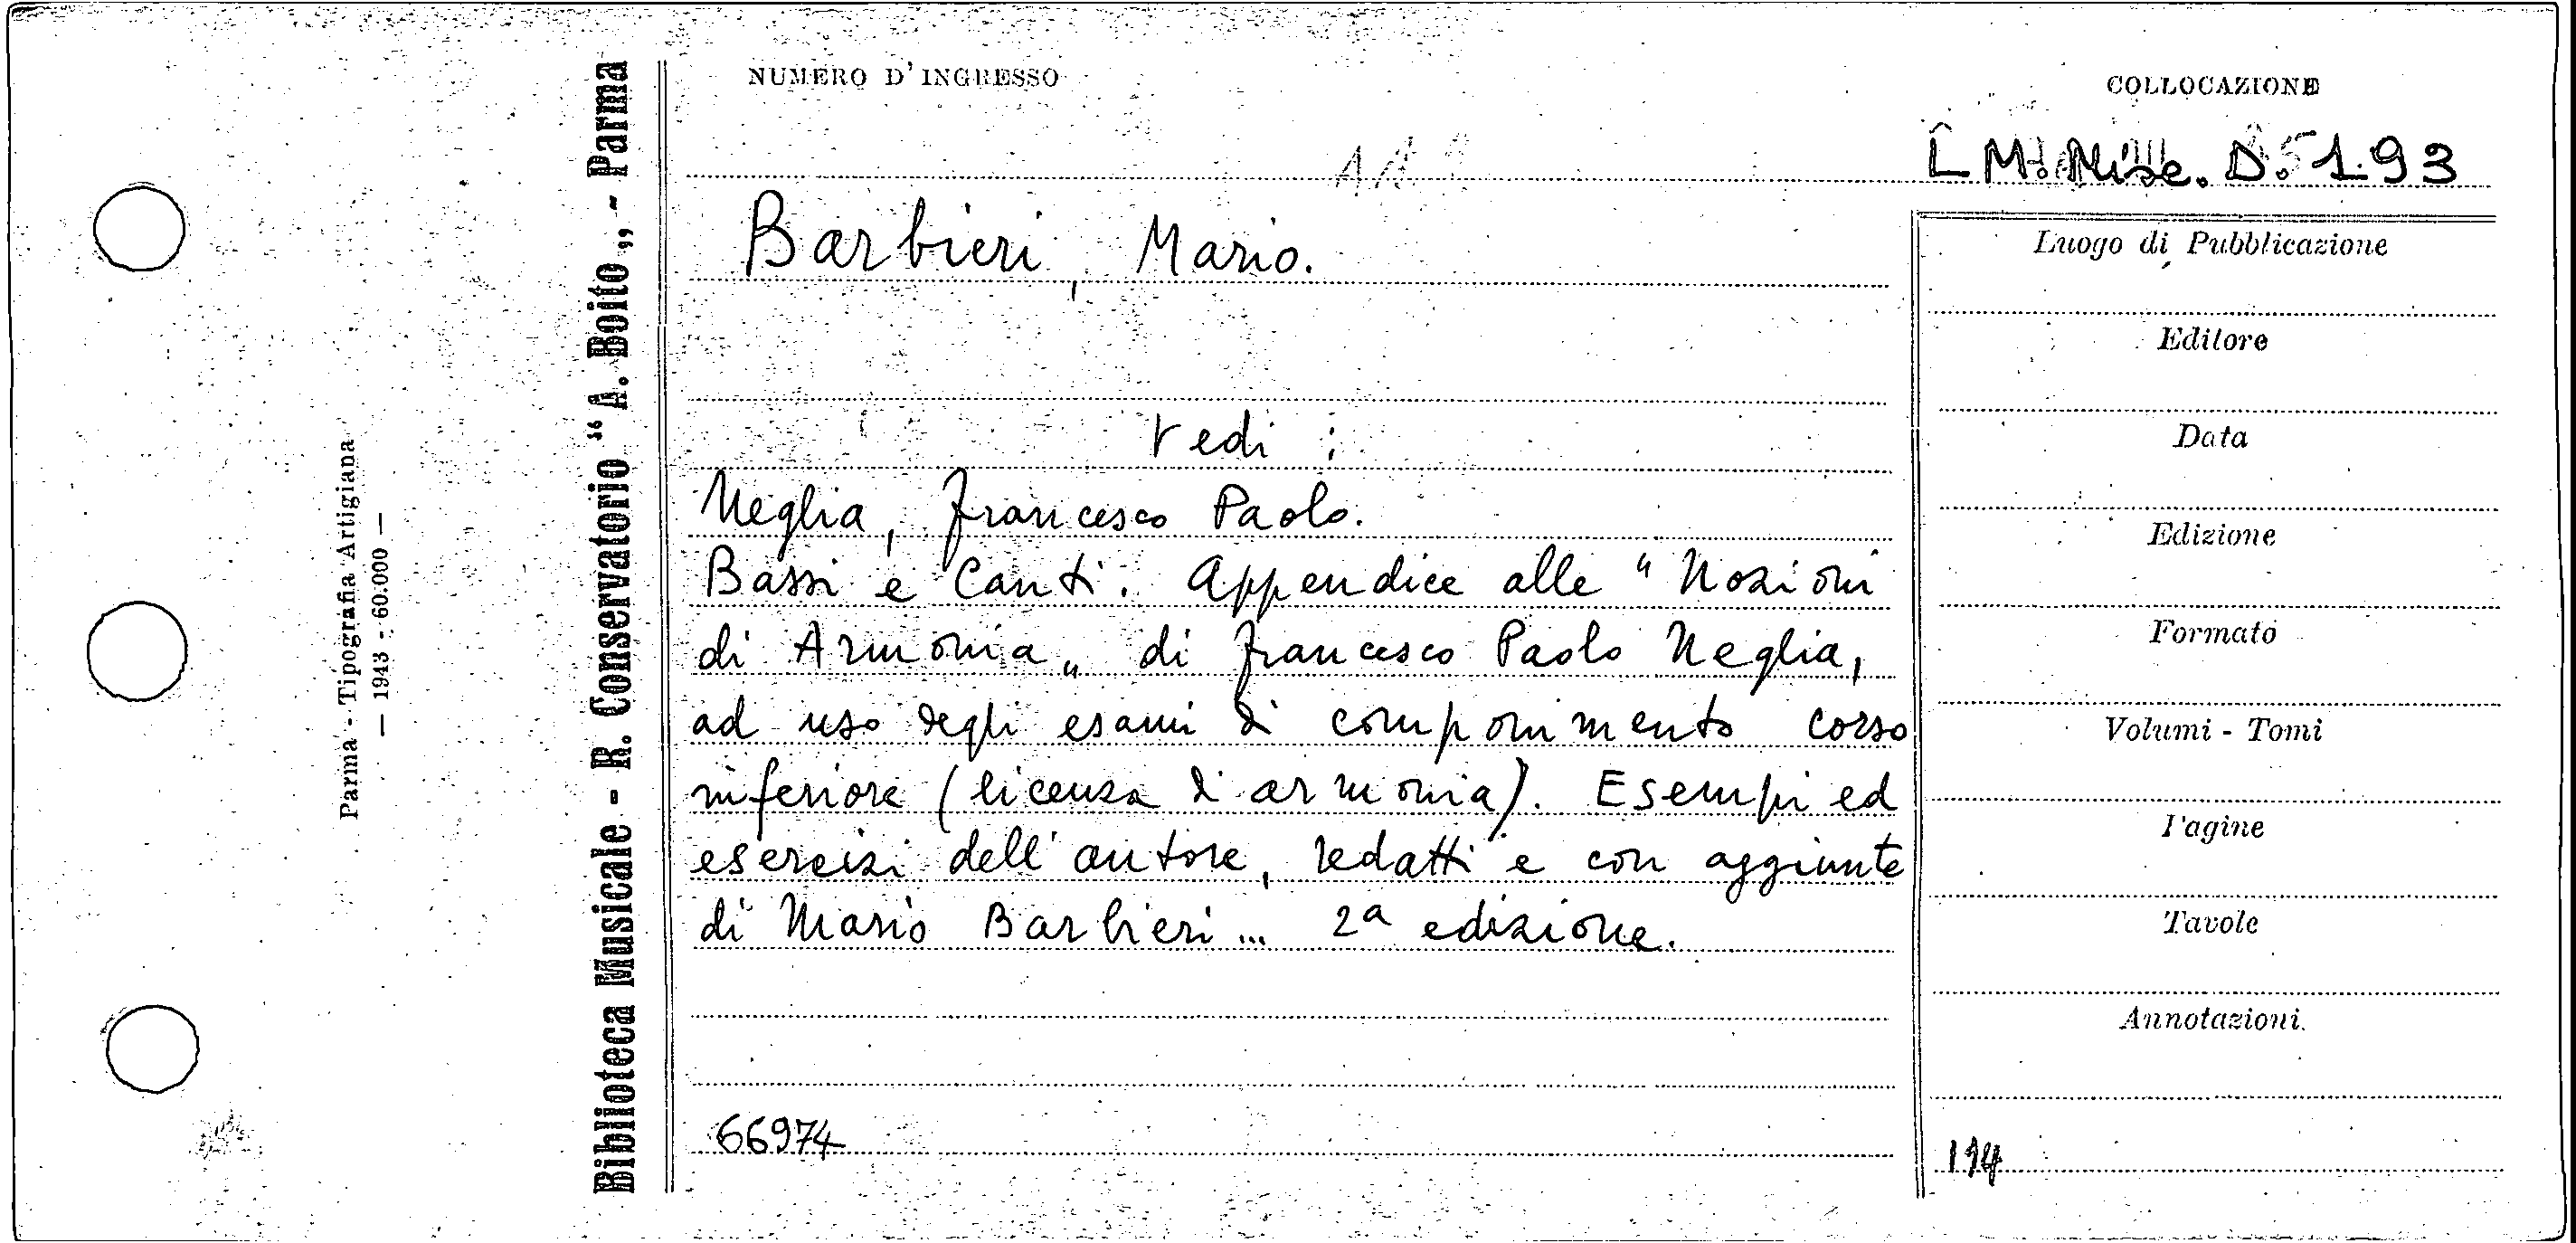 NUMERO D'INGRESSO
COLLOCAZIONE
L M. Misc. D. 193
Barbieri, Mario.
Vedi :
Neglia, Francesco Paolo.
Bassi e Canti. Appendice alle "Nozioni
di Armonia„ di Francesco Paolo Neglia,
ad uso degli esami di componimento corso
inferiore (licenza d'armonia). Esempi ed
esercizi dell'autore, redatti e con aggiunte
di Mario Barbieri... 2a edizione.
66974
Luogo di Pubblicazione
Editore
Data
Edizione
Formato
Volumi - Tomi
Pagine
Tavole
Annotazioni.
Biblioteca Musicale - R. Conservatorio "A. Boito„ - Parma
Parma - Tipografia Artigiana
— 1943 - 60.000 —